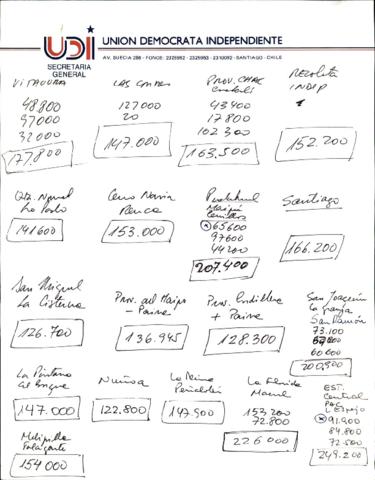 UDI
UNION DEMOCRATA INDEPENDIENTE
AV. SUECIA 286 - FONOS: 2325952 - 2325953 - 2310092 - SANTIAGO - CHILE
SECRETARIA
GENERAL
VITACURA
48.800
97000
32000
177.800
LAS CONDES
127000
20
147.000
PROV. CHAC
43400
17800
102300
163.500
RECOLETA
INDEP
152.200
Qta. Normal
Lo Prado
141600
Cerro Navia
Renca
153.000
Pudahuel
Maipú
Cerrillos
65600
97600
44200
207.400
Santiago
166.200
San Miguel
La Cisterna
126.700
Prov. del Maipo
- Paine
136.945
Prov. Cordillera
+ Paine
128.300
San Joaquín
La Granja
San Ramón
73.100
60000
200,900
La Pintana
El Bosque
147.000
Ñuñoa
122.800
La Reina
Peñalolén
147.900
La Florida
Macul
153.200
72.800
226000
EST.
Central
PAC
L'Espejo
91.900
84.800
72.500
249.200
Melipilla
Talagante
154000